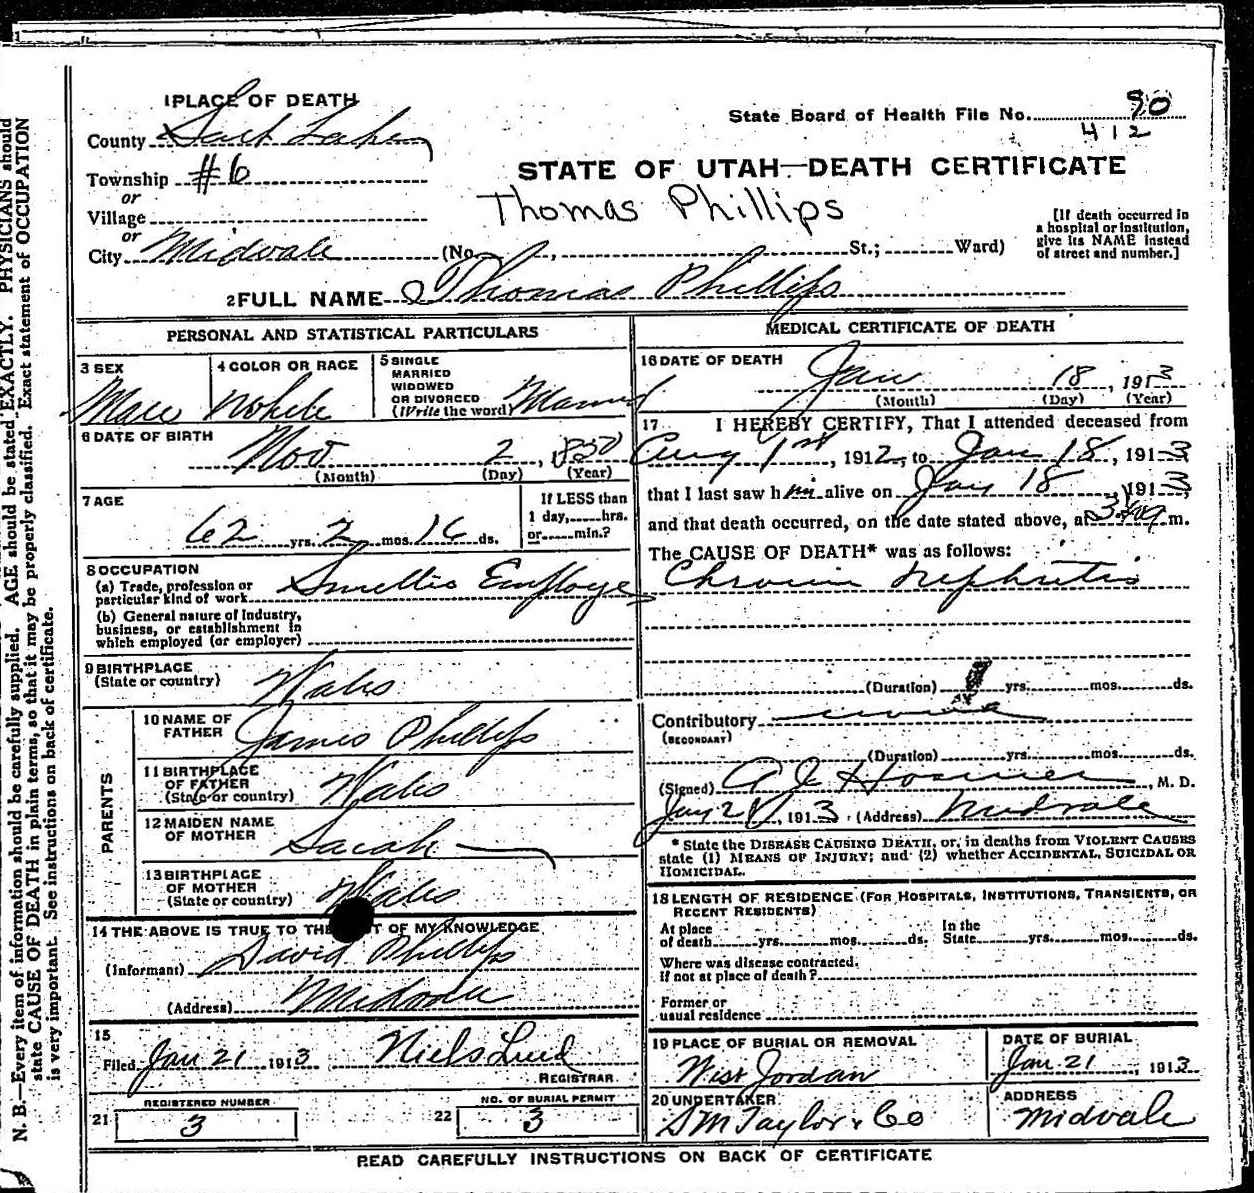 1 PLACE OF DEATH
County Salt Lake
Township #6
or
Village
or
City Midvale (No. St.; Ward)
State Board of Health File No. 90
412
STATE OF UTAH—DEATH CERTIFICATE
Thomas Phillips
[If death occurred in
a hospital or institution,
give its NAME instead
of street and number.]
2 FULL NAME Thomas Phillips
PERSONAL AND STATISTICAL PARTICULARS
3 SEX
Male
4 COLOR OR RACE
White
5 SINGLE
MARRIED
WIDOWED
OR DIVORCED
(Write the word) Married
6 DATE OF BIRTH
Nov 2, 1850
(Month) (Day) (Year)
7 AGE
62 yrs. 2 mos. 16 ds.
If LESS than
1 day, hrs.
or min.?
8 OCCUPATION
(a) Trade, profession or
particular kind of work Smelter Employe
(b) General nature of industry,
business, or establishment in
which employed (or employer)
9 BIRTHPLACE
(State or country) Wales
PARENTS
10 NAME OF
FATHER James Phillips
11 BIRTHPLACE
OF FATHER
(State or country) Wales
12 MAIDEN NAME
OF MOTHER Sarah
13 BIRTHPLACE
OF MOTHER
(State or country) Wales
14 THE ABOVE IS TRUE TO THE OF MY KNOWLEDGE
(Informant) David Phillips
(Address) Midvale
15
Filed Jan 21 1913 Niels Lind
REGISTRAR
REGISTERED NUMBER
21 3
NO. OF BURIAL PERMIT
22 3
MEDICAL CERTIFICATE OF DEATH
16 DATE OF DEATH
Jan 18, 1913
(Month) (Day) (Year)
17 I HEREBY CERTIFY, That I attended deceased from
Aug 1st, 1912, to Jan 18, 1913
that I last saw him alive on Jan 18, 1913,
and that death occurred, on the date stated above, at m.
The CAUSE OF DEATH* was as follows:
Chronic Nephritis
(Duration) yrs. mos. ds.
Contributory none
(SECONDARY)
(Duration) yrs. mos. ds.
(Signed) A J Hosmer M. D.
Jan 21, 1913 (Address) Midvale
* State the DISEASE CAUSING DEATH, or, in deaths from VIOLENT CAUSES
state (1) MEANS OF INJURY; and (2) whether ACCIDENTAL, SUICIDAL OR
HOMICIDAL.
18 LENGTH OF RESIDENCE (FOR HOSPITALS, INSTITUTIONS, TRANSIENTS, OR
RECENT RESIDENTS)
At place
of death yrs. mos. ds.
In the
State yrs. mos. ds.
Where was disease contracted,
if not at place of death?
Former or
usual residence
19 PLACE OF BURIAL OR REMOVAL
West Jordan
DATE OF BURIAL
Jan 21, 1913
20 UNDERTAKER
S M Taylor & Co
ADDRESS
Midvale
READ CAREFULLY INSTRUCTIONS ON BACK OF CERTIFICATE
N. B.—Every item of information should be carefully supplied. AGE should be stated EXACTLY. PHYSICIANS should
state CAUSE OF DEATH in plain terms, so that it may be properly classified. Exact statement of OCCUPATION
is very important. See instructions on back of certificate.